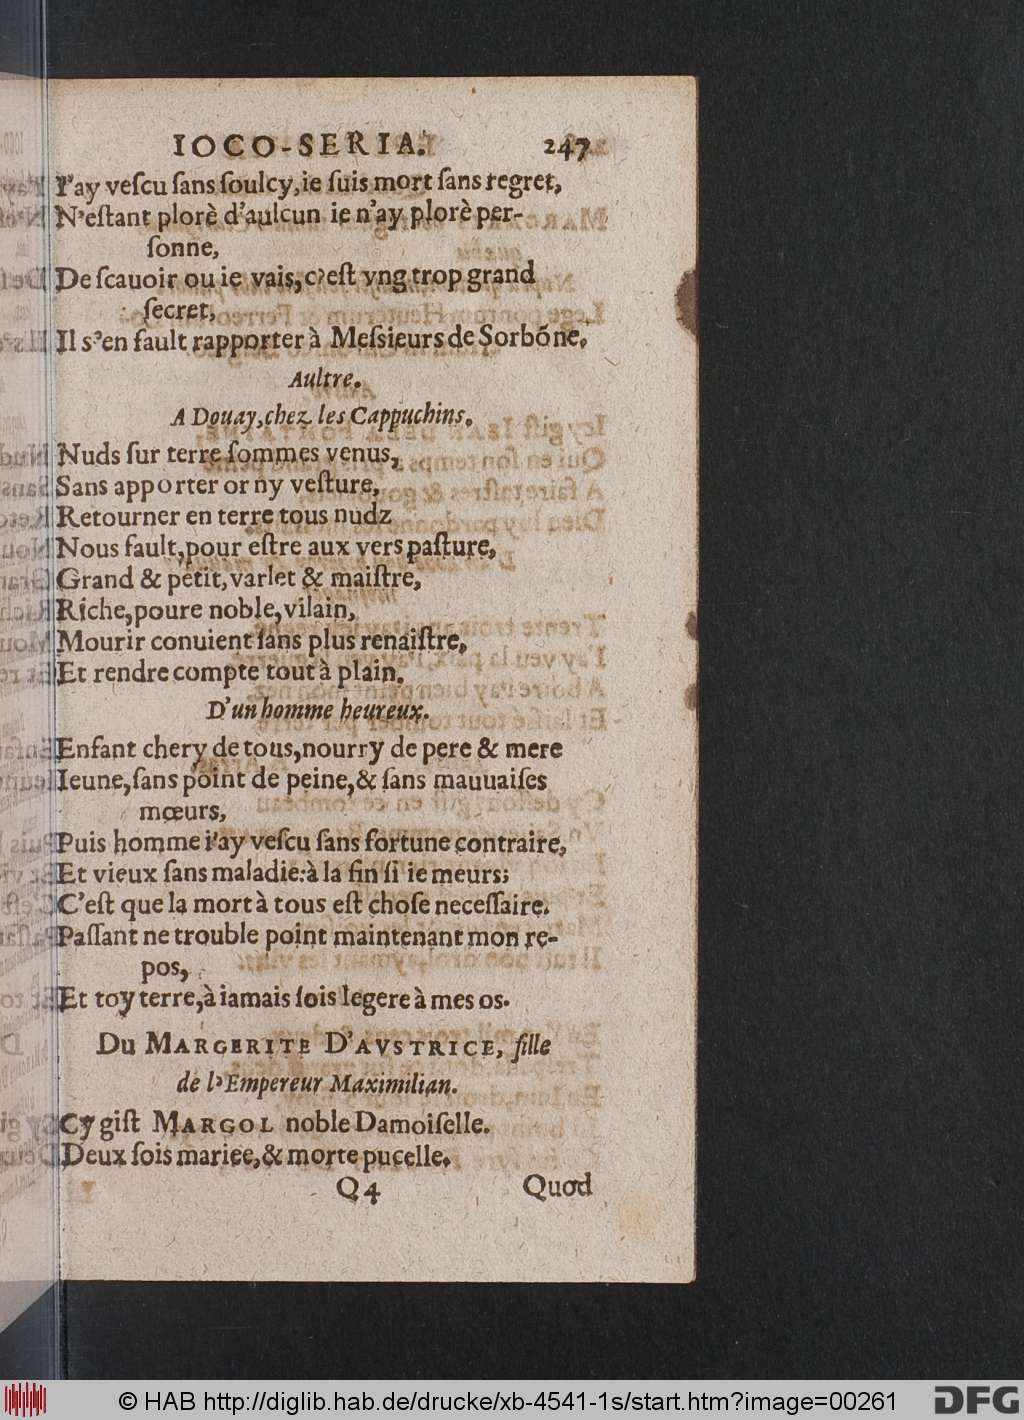 IOCO-SERIA. 247
I'ay veſcu ſans ſoulcy, ie ſuis mort ſans regret,
N'eſtant plorè d'aulcun ie n'ay plorè per-
ſonne,
De ſcauoir ou ie vais, c'eſt yng trop grand
ſecret,
Il s'en fault rapporter à Meſsieurs de Sorbóne.
Aultre.
A Douay, chez les Cappuchins.
Nuds ſur terre ſommes venus,
Sans apporter or ny veſture,
Retourner en terre tous nudz
Nous fault, pour eſtre aux vers paſture,
Grand & petit, varlet & maiſtre,
Riche, poure noble, vilain,
Mourir conuient ſans plus renaiſtre,
Et rendre compte tout à plain.
D'un homme heureux.
Enfant chery de tous, nourry de pere & mere
Ieune, ſans point de peine, & ſans mauuaiſes
mœurs,
Puis homme i'ay veſcu ſans fortune contraire,
Et vieux ſans maladie: à la fin ſi ie meurs;
C'eſt que la mort à tous eſt choſe neceſſaire.
Paſſant ne trouble point maintenant mon re-
pos,
Et toy terre, à iamais ſois legere à mes os.
Du MARGERITE D'AVSTRICE, fille
de l'Empereur Maximilian.
Cy giſt MARGOL noble Damoiſelle.
Deux fois mariee, & morte pucelle.
Q 4 Quod
© HAB http://diglib.hab.de/drucke/xb-4541-1s/start.htm?image=00261 DFG